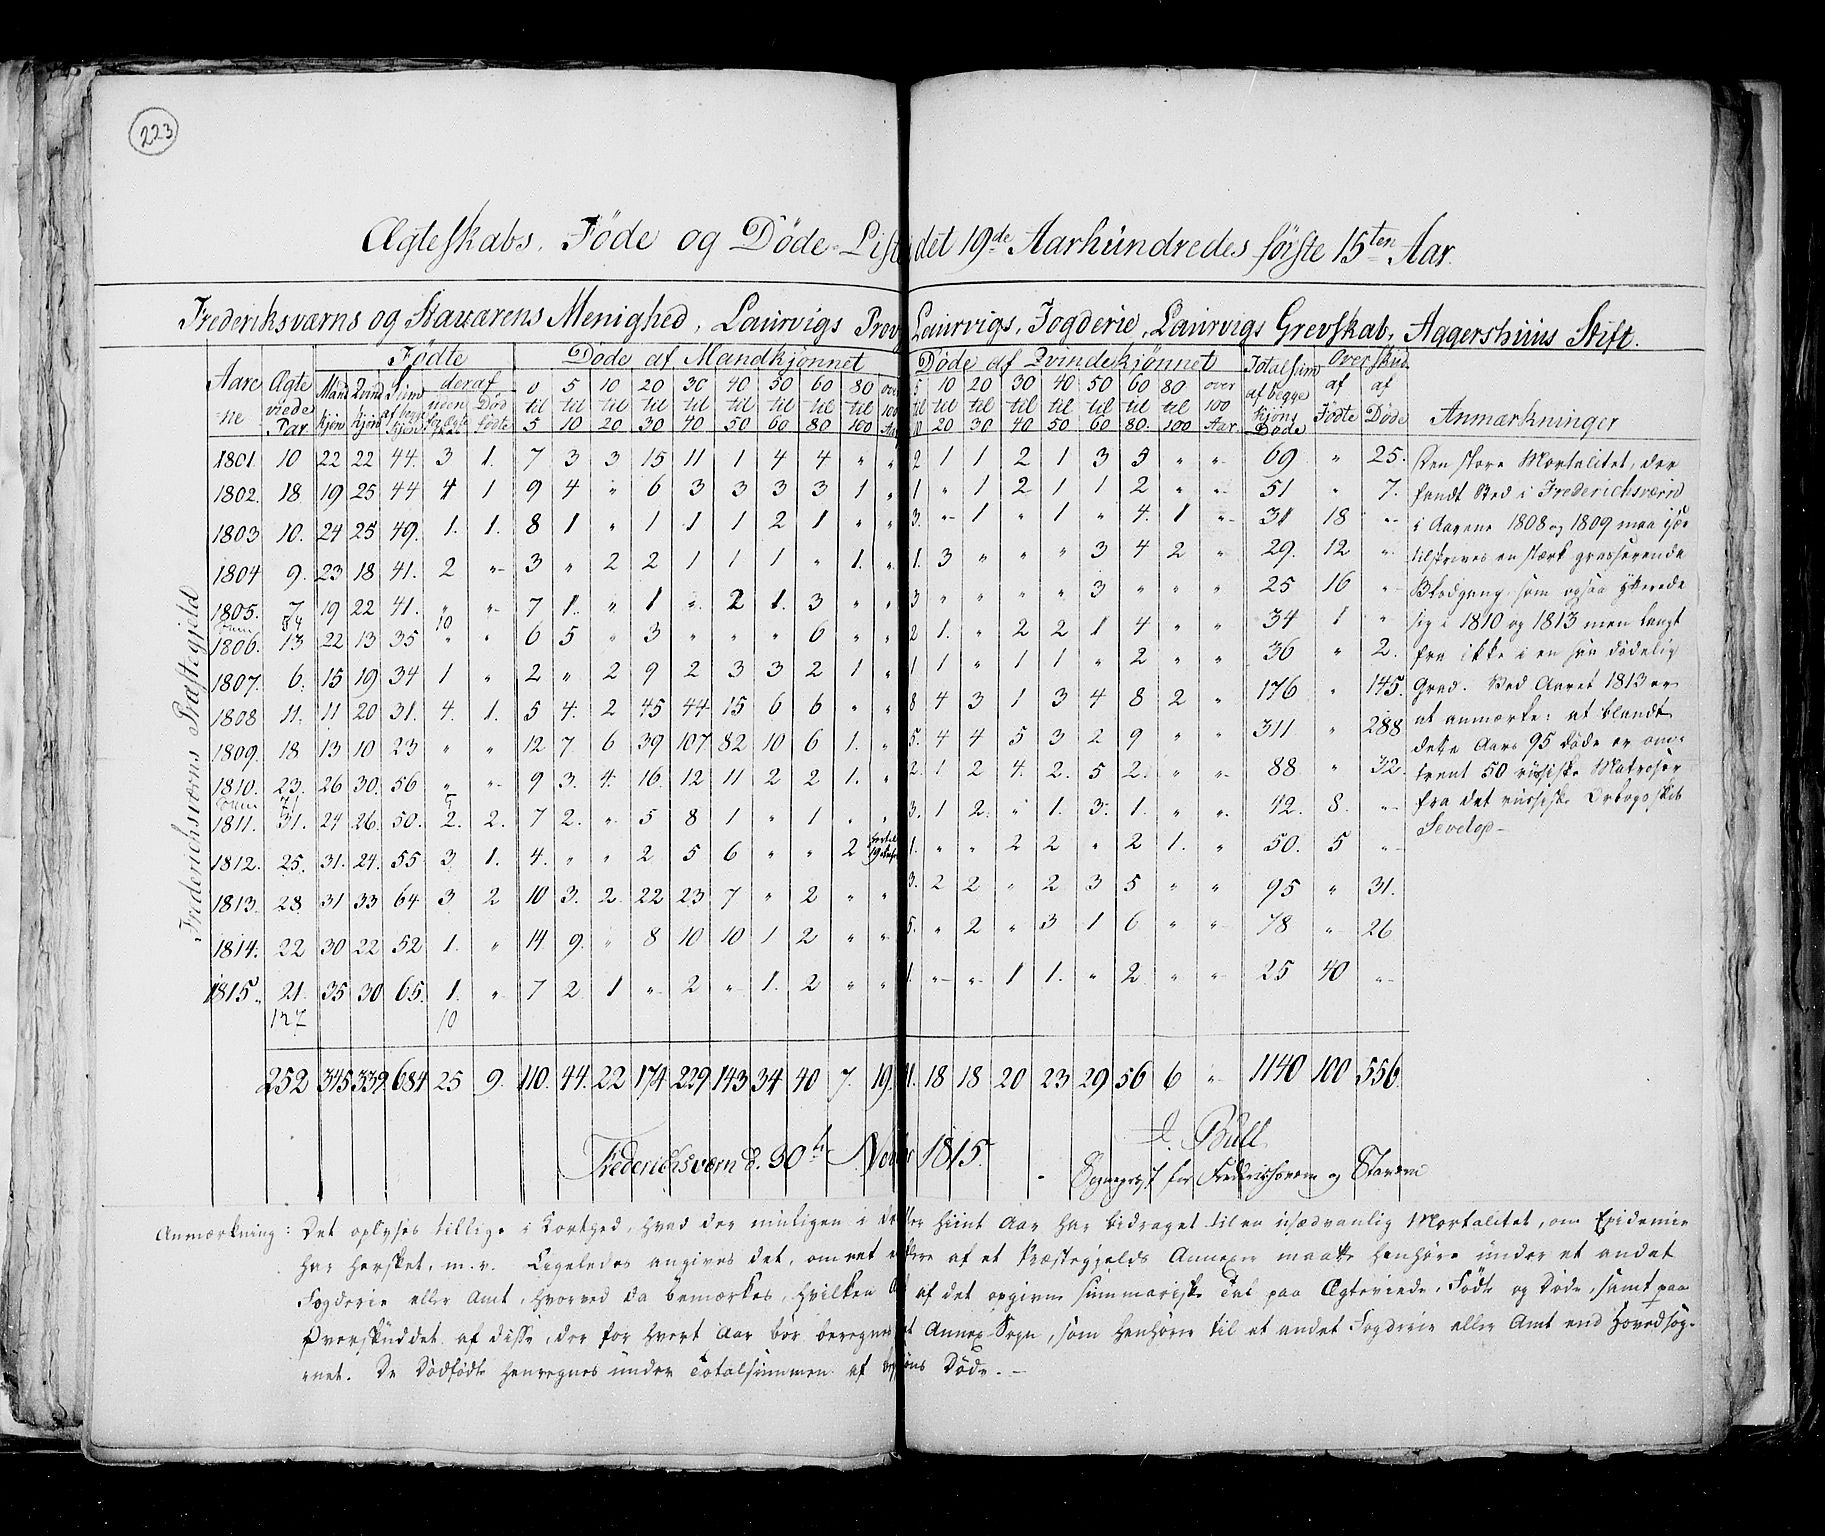 223
Ægteskabs, Föde og Döde-Liste det 19de Aarhundredes förste 15ten Aar.
Frederiksværns og Staværens Menighed, Laurvigs Prov Laurvigs, Fogderie, Laurvigs Grevskab, Aggershuus Stift.
Frederichsværns Præstegjeld
Aarene | Ægteviede Par | Födte | Döde af Mandkjönnet | Döde af Qvindekjönnet | Totalsum af begge Kjöns Döde | Overskud | Anmærkninger
Mandkjön | Qvindkjön | Sum af begge Kjön | deraf uden for Ægteskab | Dödfödte | 0 til 5 | 5 til 10 | 10 til 20 | 20 til 30 | 30 til 40 | 40 til 50 | 50 til 60 | 60 til 80 | 80 til 100 | over 100 Aar | 5 til 10 | 10 til 20 | 20 til 30 | 30 til 40 | 40 til 50 | 50 til 60 | 60 til 80. | 80 til 100 | over 100 Aar. | af Födte | af Döde
1801. 10 22 22 44. 3 1. 7 3 3 15 11 1 4 4 " " 2 1 1 2 1 3 5 " " 69 " 25.
1802. 18 19 25 44 4 1 9 4 " 6 3 3 3 3 1 " 1 " 1 2 1 1 2 " " 51 " 7.
1803 10. 24 25 49. 1. 1. 8 1 " 1 1 1 2 1 " " 3. " 1 " 1 " 4. 1 " 31 18 "
1804 9. 23 18 41. 2 " 3 " 2 2 1 1 1 " 1. " 1. 3 " " " 3 4 2 " 29. 12 "
1805. 7 19 22 41. " " 7 1. " 1 " 2 1. 3 " " 3 " " " " 3 " " " 25 16 "
54 10
1806. 13 22 13 35 " " 6 5 " 3 " " " 6 " " 2 1. " 2 2 1 4 " " 34 1 "
1807. 6. 15 19 34 1 " 2 " 2 9 2 3 3 2 1 " 1 1 " 1 1 " 2 " " 36 " 2.
1808 11. 11 20 31. 4. 1. 5 4. 2 45 44 15 6 6 " " 8 4 3 1 3 4 8 2 " 176 " 145.
1809. 18 13 10 23 " " 12 7. 6 39 107 82 10 6 1. " 5. 4 4 5 3 2 9 " " 311 " 288
1810. 23. 26 30. 56 " " 9 3. 4. 16. 12 11 2 2 1. " 2. 1 2 4. 2. 5 2. " " 88 " 32.
71 5
1811. 31. 24 26. 50. 2. 2. 7 2. " 5 8 1 " 1 " " 3. 1 2. " 1. 3. 1. " " 42. 8. "
1812. 25. 31. 24. 55 3 1. 4. " " 2 5 6 " " 2 19 1. " " 2 2 " 2 1. " 50. 5 "
1813. 28. 31 33 64 3 2 10 3. 2 22 23 7 " 2 " " 3. 2 2 " 2 3 5 " " 95 " 31.
1814. 22 30 22 52 1. " 14. 9. " 8 10 10 1 2 " " 5. " 2 " 3 1 6 " " 78 " 26
1815. 21. 35 30 65. 1. " 7 2 1 " 2 " 1. 2 " " 1. " " 1 1. " 2 " " 25 40 "
127 10
252 345 339. 684 25 9. 110. 44. 22 174 229. 143 34 40 7. 19. 18 18 20 23 29 56 6 " 1140 100 556.
Den store Mortalitet, der
fandt Sted i Frederichsværn
i Aarene 1808 og 1809 maa især
tilskrives en stærk grasserende
Blodgang som ogsaa yttrede
sig i 1810 og 1813 men langt
fra ikke i en saa dödelig
Grad. Ved Aaret 1813 er
at anmærke: at blandt
dette Aars 95 döde er om-
trent 50 russiske Matroser
fra det russiske Orlogsskib
Frederichsværn d. 30te Novbr 1815.
Bull
Sognepræst for Frederichsværn og Staværn
Anmærkning: Det oplyses tillige i Korthed, hvad der muligen i et eller hiint Aar har bidraget til en usædvanlig Mortalitet, om Epidemie
har hersket, m. v. Ligeledes angives det, om et eller flere af et Præstegjelds Annexer maatte henhöre under et andet
Fogderie eller Amt, hvorved da bemærkes, hvilken Deel af det opgivne summariske Tal paa Ægteviede, Födte og Döde, samt paa
Overskuddet af disse, der for hvert Aar bör beregnes det Annex-Sogn, som henhörer til et andet Fogderie eller Amt end Hovedsog-
net. De Dödfödte henregnes under Totalsummen af begge Kjöns Döde.